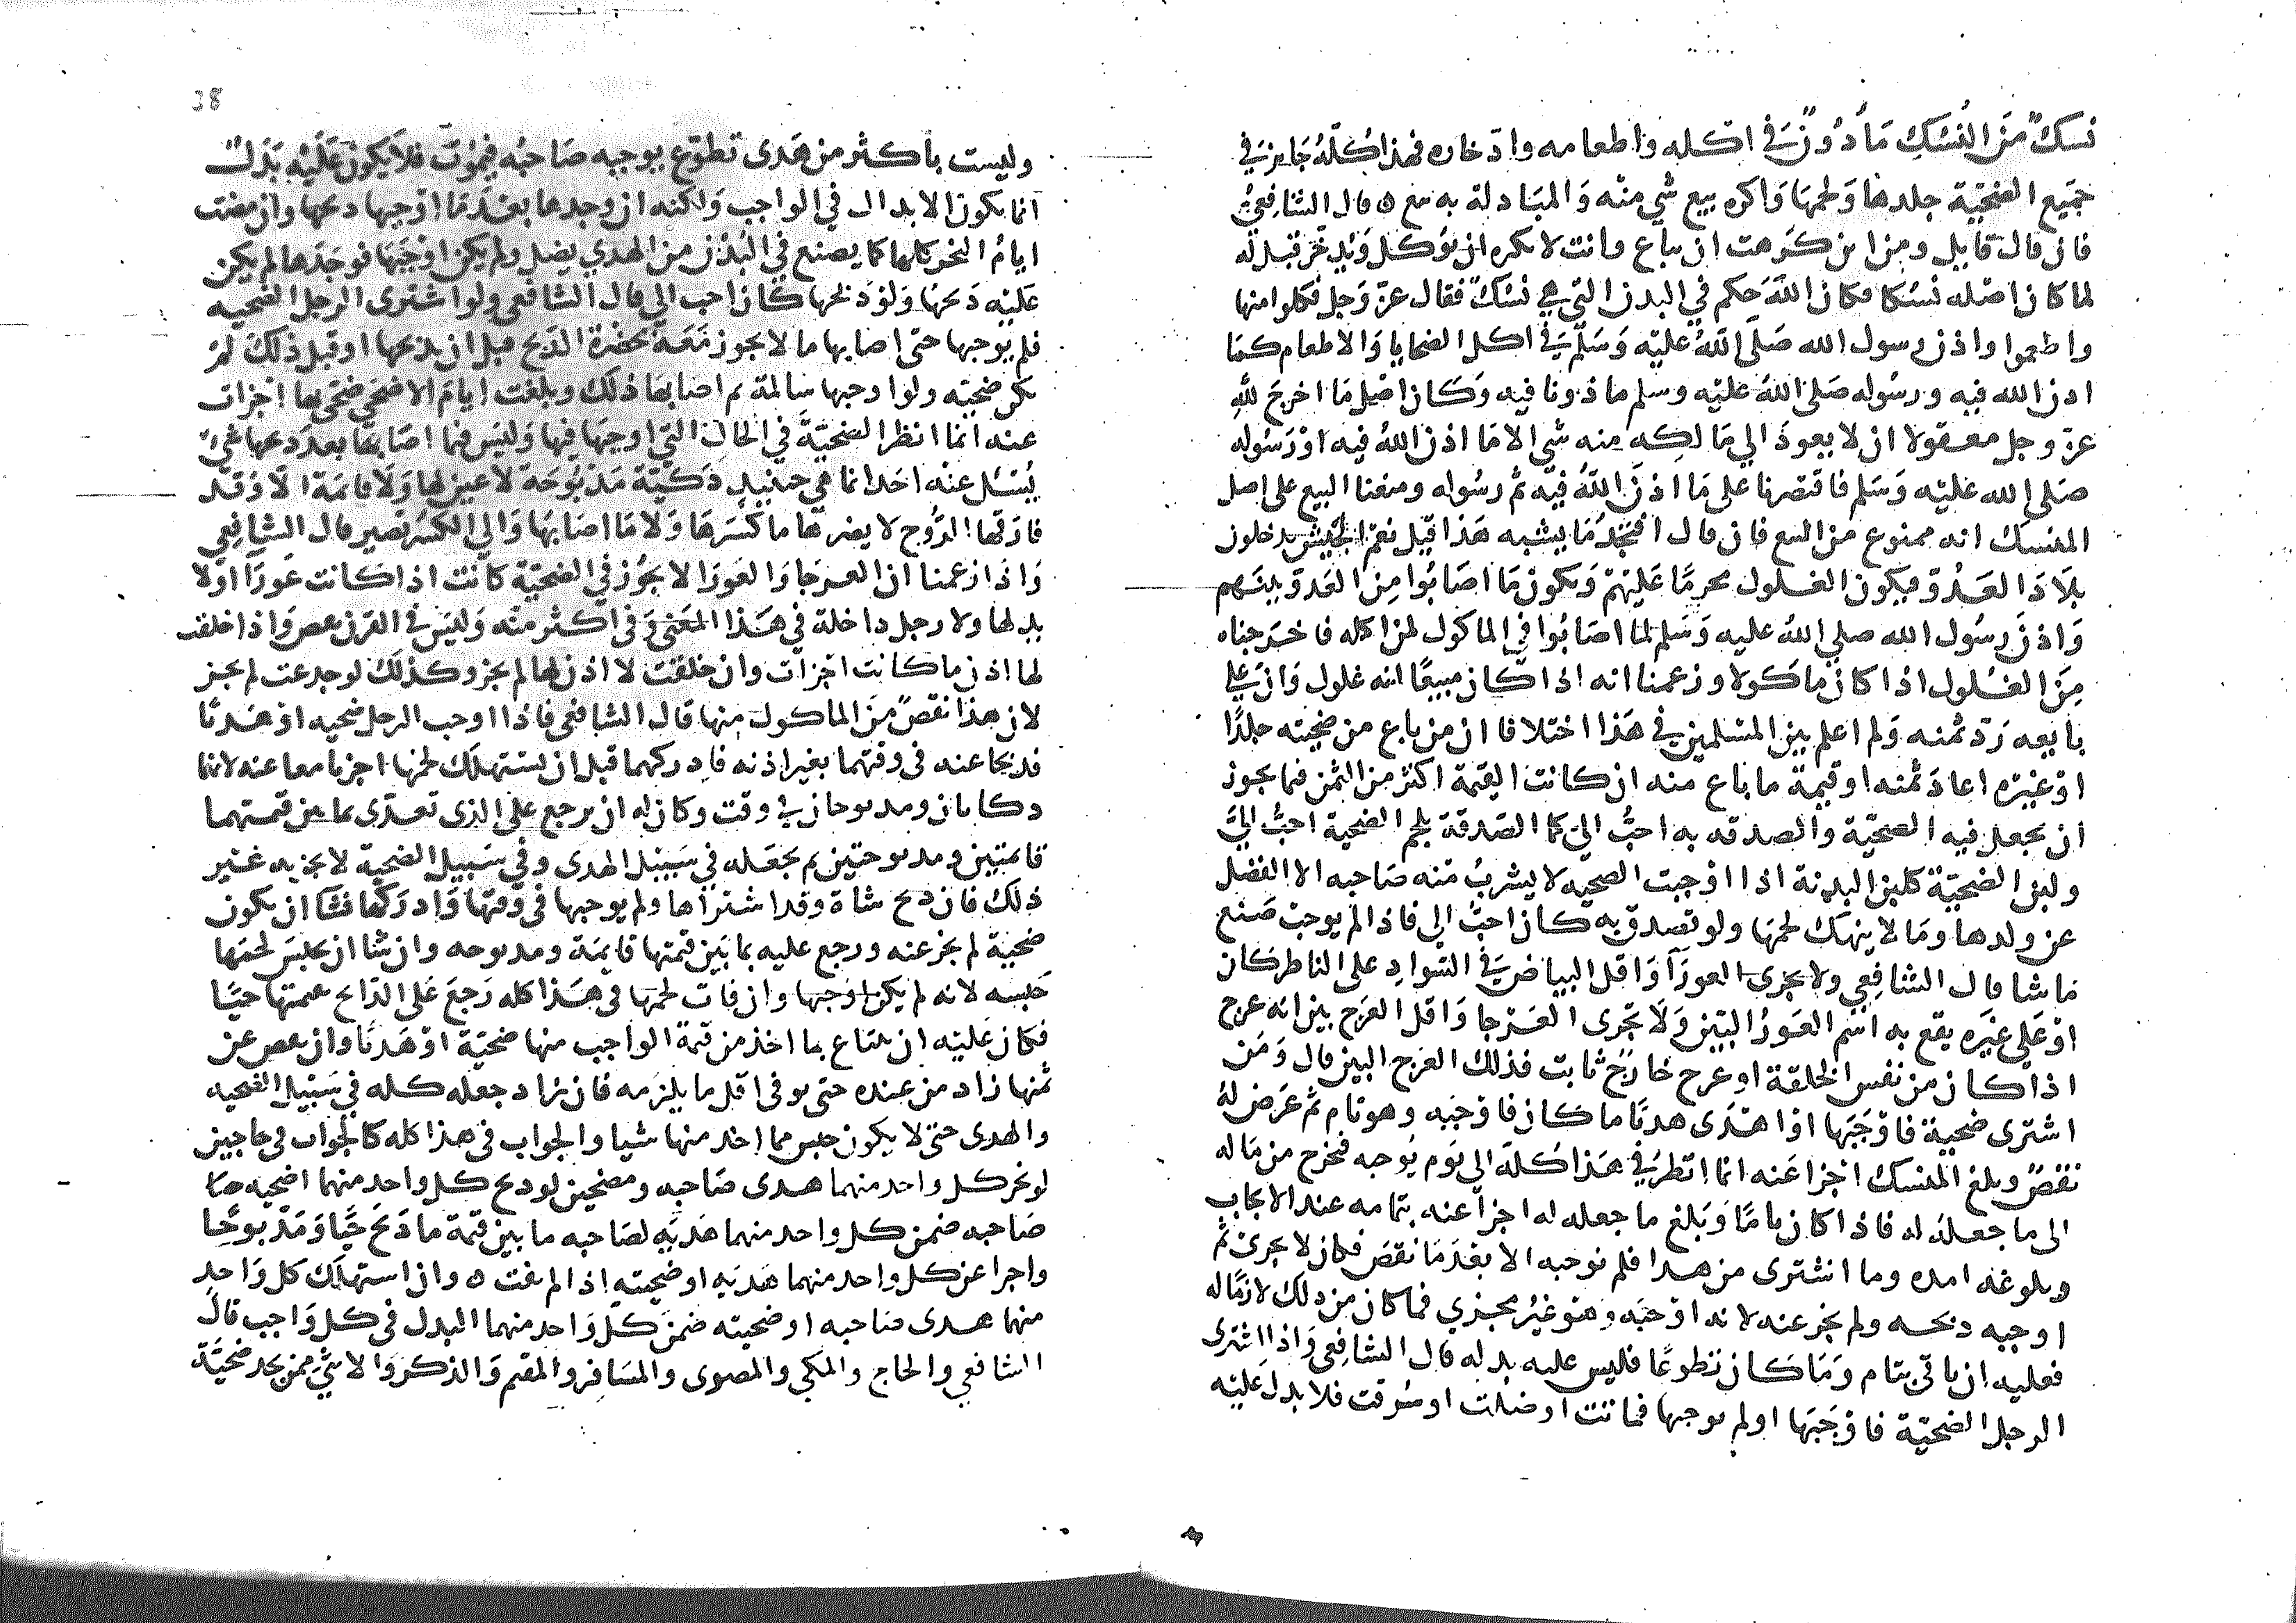 نسك من النسك مأذون في اكله واطعامه وادخاره فهذا كله جايز في
جميع الضحية جلدها ولحمها واكره بيع شي منه والمبادلة به بيع قال الشافعي
فان قال قايل ومن اين كرهت ان يباع وانت لا تكره ان يؤكل ويدخر قيل له
لما كان اصله نسكا فكان الله حكم في البدن التي هي نسك فقال عز وجل فكلوا منها
واطعموا واذن رسول الله صلى الله عليه وسلم في اكل الضحايا والاطعام كما
اذن الله فيه ورسوله صلى الله عليه وسلم ماذونا فيه وكان اصل ما اخرج لله
عز وجل معقولا ان لا يعود الي مالكه منه شي الا ما اذن الله فيه او رسوله
صلى الله عليه وسلم فاقتصرنا على ما اذن الله فيه ثم رسوله ومنعنا البيع على اصل
المنسك انه ممنوع من البيع فان قال افتجد ما يشبه هذا قيل نعم الجيش يدخلون
بلاد العدو فيكون الغلول محرما عليهم ويكون ما اصابوا من العدو بينهم
واذن رسول الله صلي الله عليه وسلم لما اصابوا في الماكول لمن اكله فاخرجناه
من الغلول اذا كان ماكولا وزعمنا انه اذا كان مبيعا انه غلول وان على
بايعه رد ثمنه ولم اعلم بين المسلمين في هذا اختلافا ان من باع من ضحيته جلدا
او غيره اعاد ثمنه او قيمة ما باع منه ان كانت القيمة اكثر من الثمن فيما يجوز
ان يجعل فيه الضحية والصدقه به احب الي كما الصدقة بلحم الضحية احب الي
ولبن الضحية كلبن البدنة اذا اوجبت الضحيه لا يشرب منه صاحبه الا الفضل
عن ولدها وما لا ينهك لحمها ولو تصدق به كان احب الي فاذا لم يوجب صنع
ما شا قال الشافعي ولا تجزى العورآ واقل البياض في السواد على الناظر كان
او على غيره يقع به اسم العور البين ولا تجزى العرجا واقل العرج بين انه عرج
اذا كان من نفس الخلقة او عرج خارج ثابت فذلك العرج البين قال ومن
اشترى ضحية فاوجبها او اهدى هديا ما كان فاوجبه وهو تام ثم عرض له
نقص وبلغ المنسك اجزا عنه انما انظر في هذا كله الي يوم يوجبه فيخرج من ماله
الى ما جعله له فاذا كان تاما وبلغ ما جعله له اجزا عنه بتمامه عند الايجاب
وبلوغه امده وما اشترى من هدا فلم يوجبه الا بعد ما نقص فكان لا يجزئ ثم
اوجبه ذبحه ولم يجز عنه لانه اوجبه وهو غير مجزي فما كان من ذلك لازما له
فعليه ان ياتي بتام وما كان تطوعا فليس عليه بدله قال الشافعي واذا اشترى
الرجل الضحية فاوجبها او لم يوجبها فماتت او ضلت او سرقت فلا بدل عليه
38
وليست باكثر من هدى تطوع يوجبه صاحبه فيموت فلا يكون عليه بدل
انما يكون الابدال في الواجب ولكنه ان وجدها بعد ما اوجبها ذبحها وان مضت
ايام النحر كلها كما يصنع في البدن من الهدي يضل ولم يكن اوجبها فوجدها لم يكن
عليه ذبحها ولو ذبحها كان احب الي قال الشافعي ولو اشترى الرجل الضحيه
فلم يوجبها حتى اصابها ما لا يجوز معه بحضرة الذبح قبل ان يذبحها او قبل ذلك لم
تكن ضحيته ولو اوجبها سالمة ثم اصابها ذلك وبلغت ايام الاضحى ضحى بها اجزات
عنه انما انظر الضحية في الحال التي اوجبها فيها وليس فيما اصابها بعد ذبحها شي
يسئل عنه احد انما هي حينيذ ذكية مذبوحة لا عين لها ولا قايمة الا وقد
فارقها الروح لا يضرها ما كسرها ولا ما اصابها والي الكسر تصير قال الشافعي
واذا زعمنا ان العرجا والعورا لا يجوز في الضحية كانت اذا كانت عورآ او لا
يد لها ولا رجل داخلة في هذا المعنى وفي اكثر منه وليس في القرن نقص واذا خلقت
لها اذن ما كانت اجزات وان خلقت لا اذن لها لم يجز وكذلك لو جدعت لم يجز
لان هذا نقص من الماكول منها قال الشافعي فاذا اوجب الرجل ضحيه او هديا
فذبحا عنه في وقتهما بغير اذنه فادركهما قبل ان يستهلك لحمها اجزيا معا عنه لانهما
ذكاتان ومذبوحان في وقت وكان له ان يرجع على الذى تعدى بما بين قيمتهما
قايمتين ومذبوحتين ثم يجعله في سبيل الهدى وفي سبيل الضحية لا يجزيه غير
ذلك فان ذبح شاة وقد اشتراها ولم يوجبها في وقتها وادركها فشا ان يكون
ضحية لم يجز عنه ورجع عليه بما بين قيمتها قايمة ومذبوحه وان شا ان يحبس لحمها
حبسه لانه لم يكن اوجبها وان فات لحمها في هذا كله رجع على الذابح بقيمتها حيا
فكان عليه ان يبتاع بما اخذ من قيمة الواجب منها ضحية او هديا وان نقص عن
ثمنها زاد من عنده حتى يوفي اقل ما يلزمه فان زاد جعله كله في سبيل الضحيه
والهدى حتى لا يكون حبس مما اخذ منها شيا والجواب في هذا كله كالجواب في حاجين
لو نحر كل واحد منهما هدى صاحبه ومضحين لو ذبح كل واحد منهما اضحيه
صاحبه ضمن كل واحد منهما هديه لصاحبه ما بين قيمة ما ذبح حيا ومذبوحا
واجزا عن كل واحد منهما هديه او ضحيته اذا لم يفت ه وان استهلك كل واحد
منهما هدى صاحبه او ضحيته ضمن كل واحد منهما البدل في كل واجب قال
الشافعي والحاج والمكي والمصوى والمسافر والمقيم والذكر والانثى ممن يجد ضحية